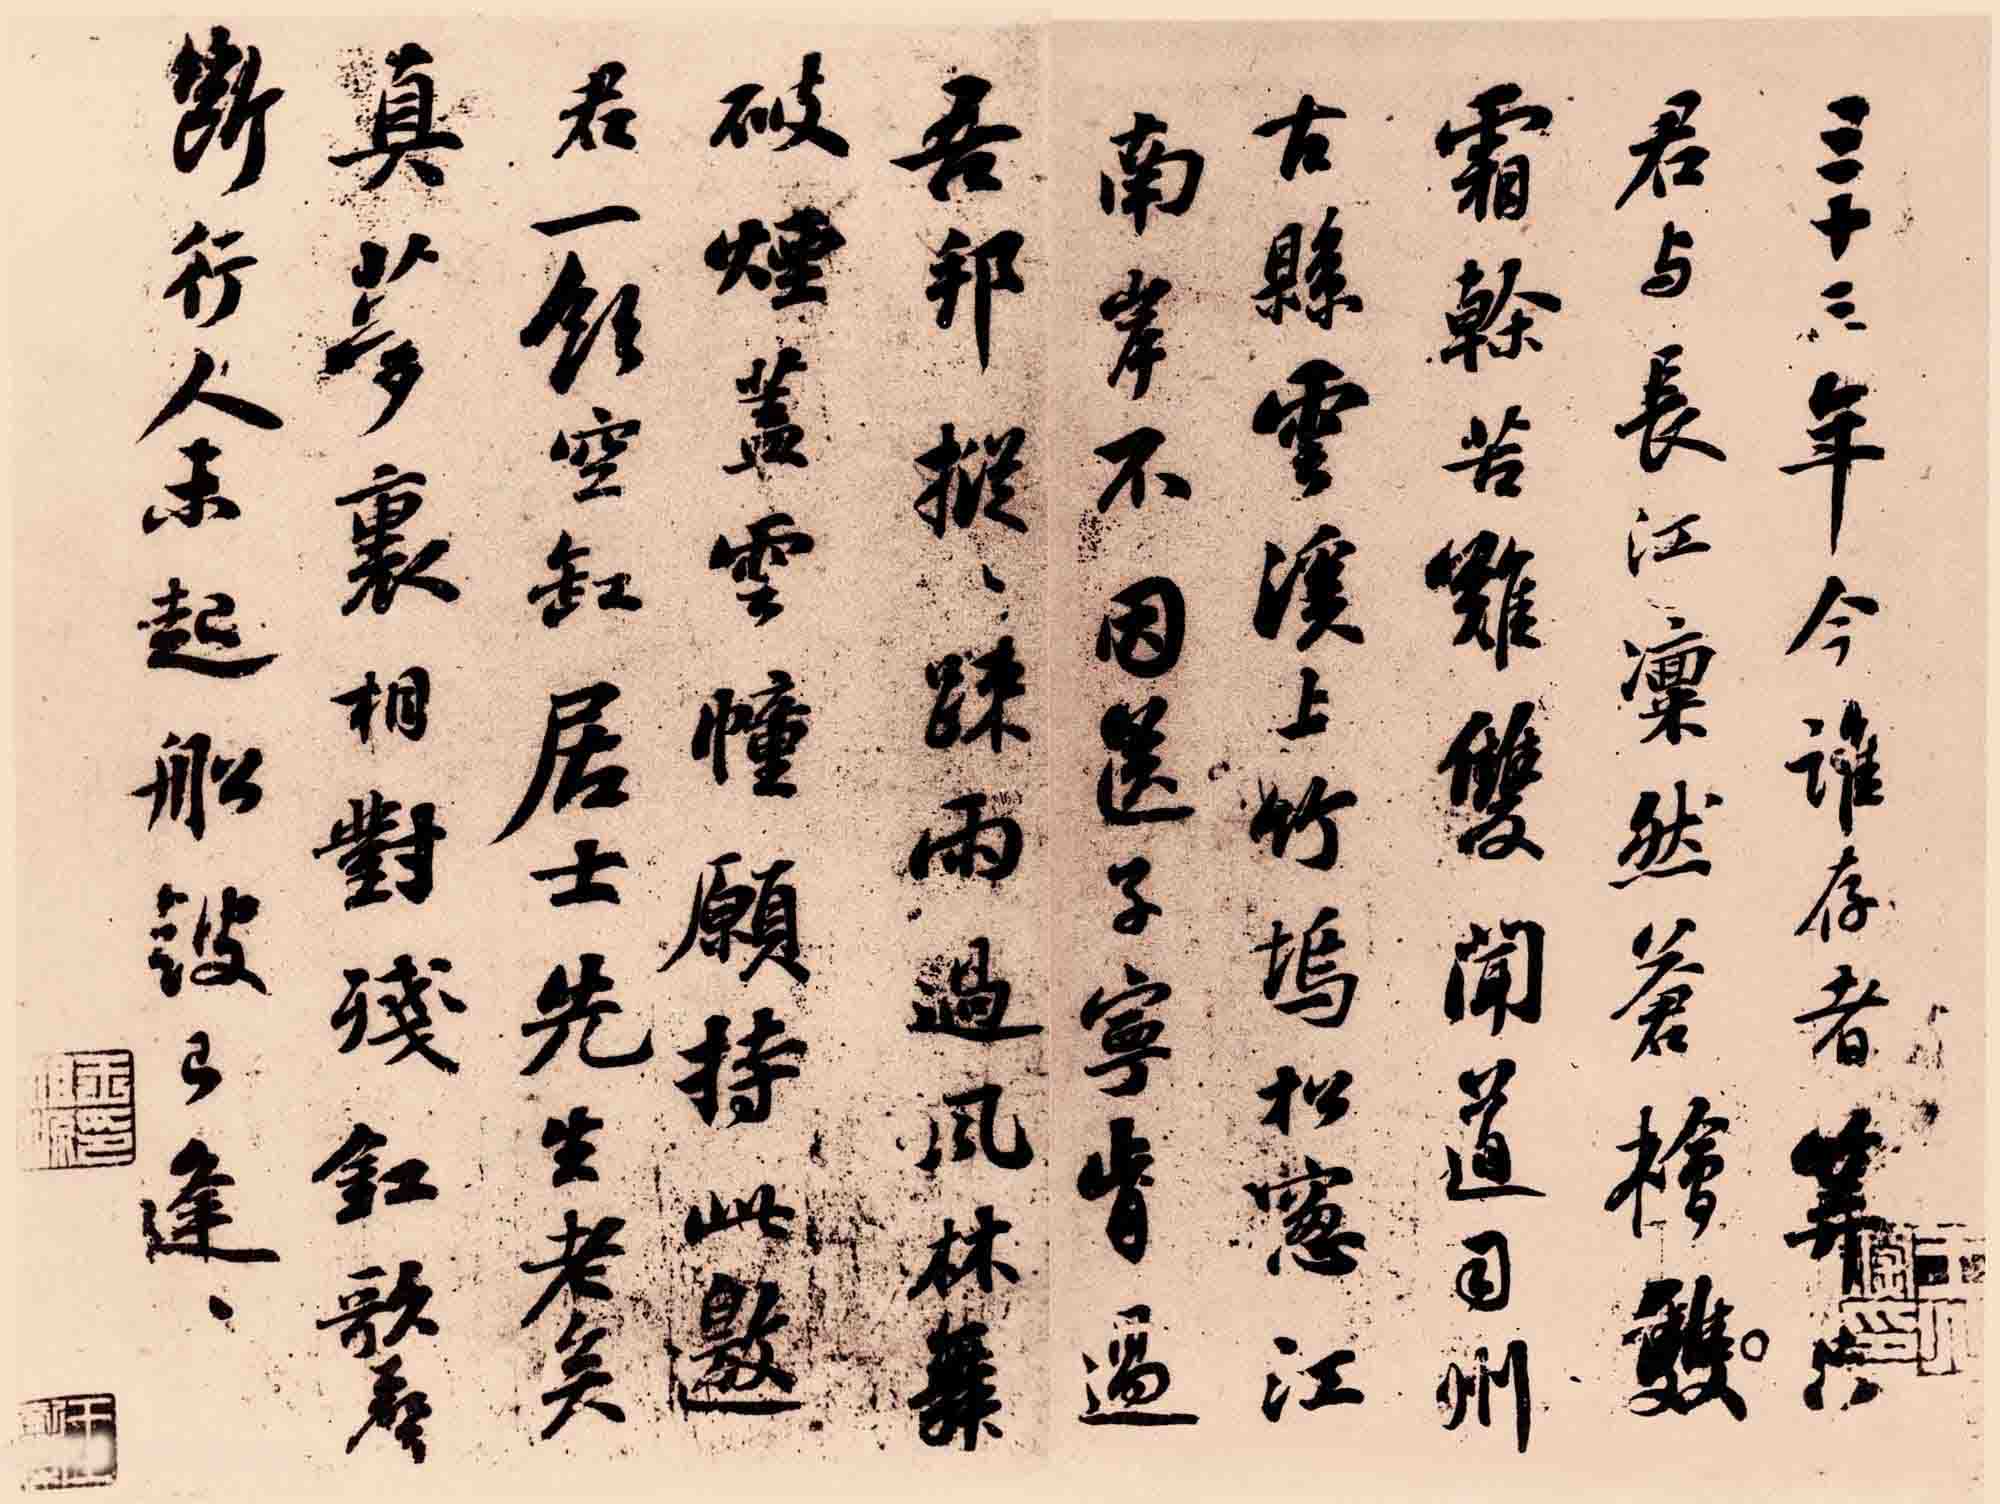 三十三年今誰存者筭只
君与長江凜然蒼檜雙
霜幹苦難雙聞道司州
古縣雲溪上竹塢松窓江
南岸不因送子寧肯過
吾邦摐〻踈雨過風林舞
破煙蓋雲幢願持此邀
君一飲空缸居士先生老矣
真夢裏相對殘釭歌聲
斷行人未起船皷已逢〻